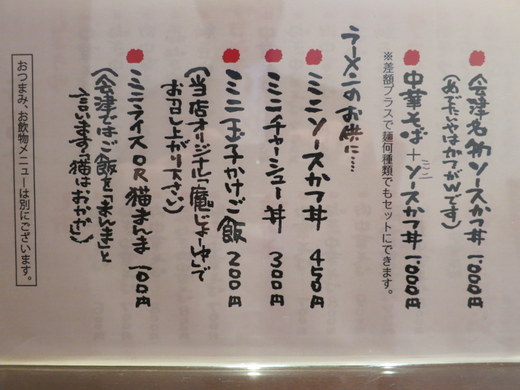 会津名物ソースかつ丼 1000円
(めでたいやはカツがWです)
中華そば+ミニソースかつ丼 1000円
※差額プラスで麺何種類でもセットにできます。
ラーメンのお供に…
ミニソースかつ丼 450円
ミニチャーシュー丼 300円
ミニ玉子かけご飯 200円
(当店オリジナル「魔じょーゆ」で
お召し上がり下さい)
ミニライスOR猫まんま 100円
(会津ではご飯を「まんま」と
言います。猫はおかか)
おつまみ、お飲物メニューは別にございます。